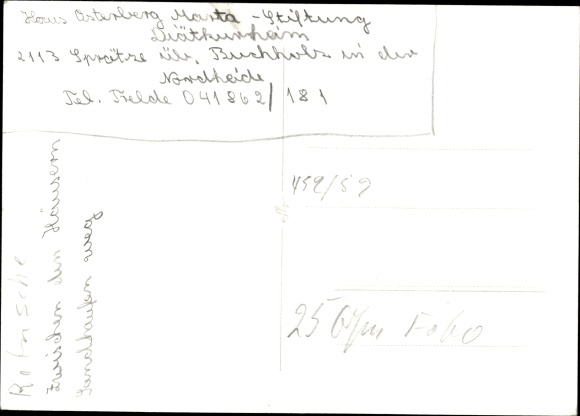 Haus Osterberg Marta - Stiftung
Diätkurheim
2113 Sprötze üb. Buchholz in der
Nordheide
Tel. Trelde 041862/181
459/59
Zwischen den Häusern
Sandhaufen weg
25 Foto